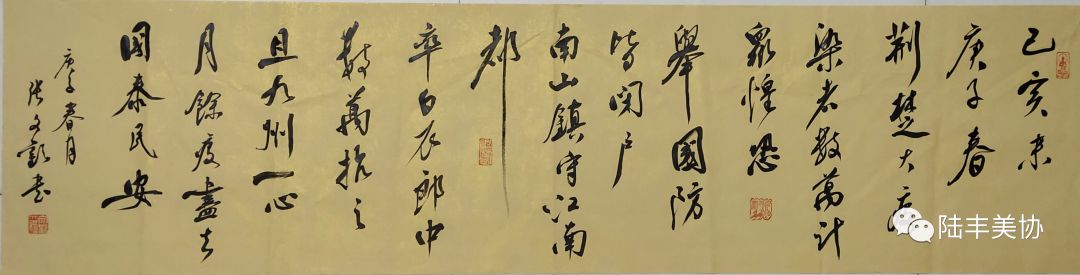 己亥末
庚子春
荆楚大疫
染者数萬计
衆惶恐
舉國防
皆闭户
南山鎮守江南
都
率白衣郎中
数萬抗之
且九州一心
月餘疫盡去
国泰民安
庚子春月
张文书
陆丰美协